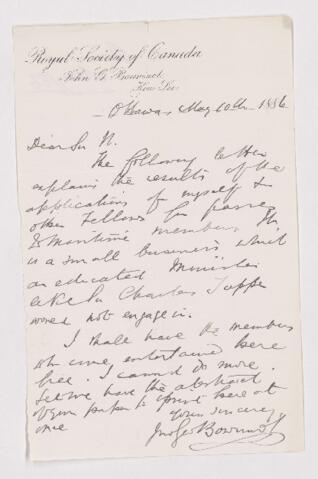 Royal Society of Canada
John G. Bourinot
Hon. Sec.
Ottawa May 10th 1886
Dear Sir W.
The following letter
explains the results of the
application of myself &
other Fellows for passes
to Maritime members. It
is a small business which
an educated Minister
like Sir Charles Tupper
would not engage in.
I shall have the members
who come, entertained here
free. I cannot do more.
Let me have the abstract
of your paper to print here at
once
Yours sincerely
Jno Geo Bourinot